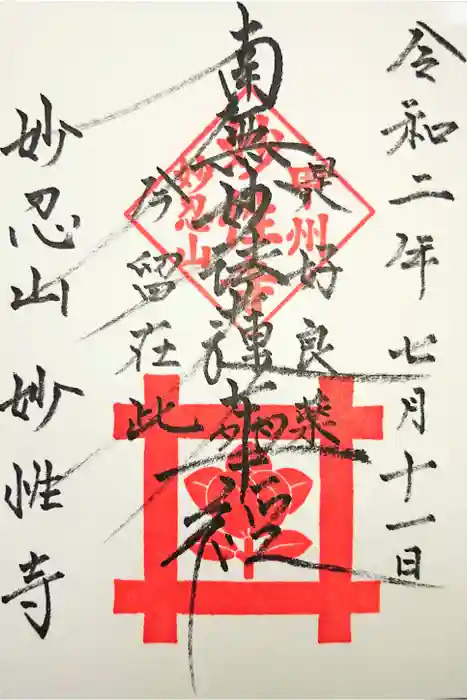 令和二年 七月十一日
是好良薬
南無妙法蓮華経
今留在此
妙忍山 妙性寺
妙性寺
妙忍山